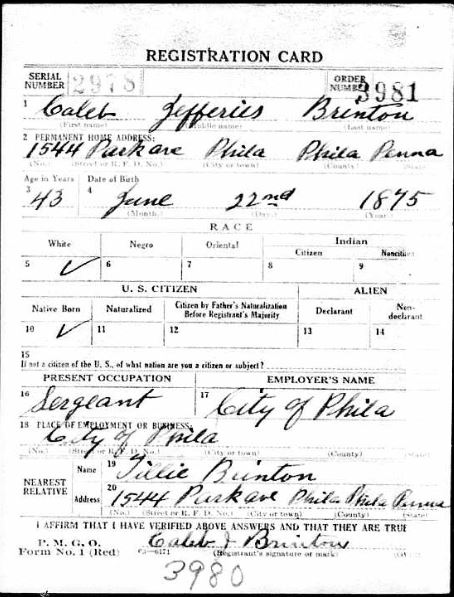 REGISTRATION CARD
SERIAL NUMBER 2978 ORDER NUMBER 3981
1 Caleb Jefferies Brinton
(First name) (Middle name) (Last name)
2 PERMANENT HOME ADDRESS:
1544 Park ave Phila Phila Penna
(No.) (Street or R. F. D. No.) (City or town) (County) (State)
Age in Years Date of Birth
3 43 4 June 22nd 1875
(Month.) (Day.) (Year.)
RACE
White Negro Oriental Indian
Citizen Noncitizen
5 ✓ 6 7 8 9
U. S. CITIZEN ALIEN
Native Born Naturalized Citizen by Father's Naturalization Before Registrant's Majority Declarant Non-declarant
10 ✓ 11 12 13 14
15
If not a citizen of the U. S., of what nation are you a citizen or subject?
PRESENT OCCUPATION EMPLOYER'S NAME
16 Sergeant 17 City of Phila
18 PLACE OF EMPLOYMENT OR BUSINESS:
City of Phila
(No.) (Street or R. F. D. No.) (City or town) (County) (State)
NEAREST RELATIVE Name 19 Tillie Brinton
Address 20 1544 Park ave Phila Phila Penna
(No.) (Street or R. F. D. No.) (City or town) (County) (State)
I AFFIRM THAT I HAVE VERIFIED ABOVE ANSWERS AND THAT THEY ARE TRUE
P. M. G. O.
Form No. 1 (Red) Caleb J Brinton
(Registrant's signature or mark)
3980